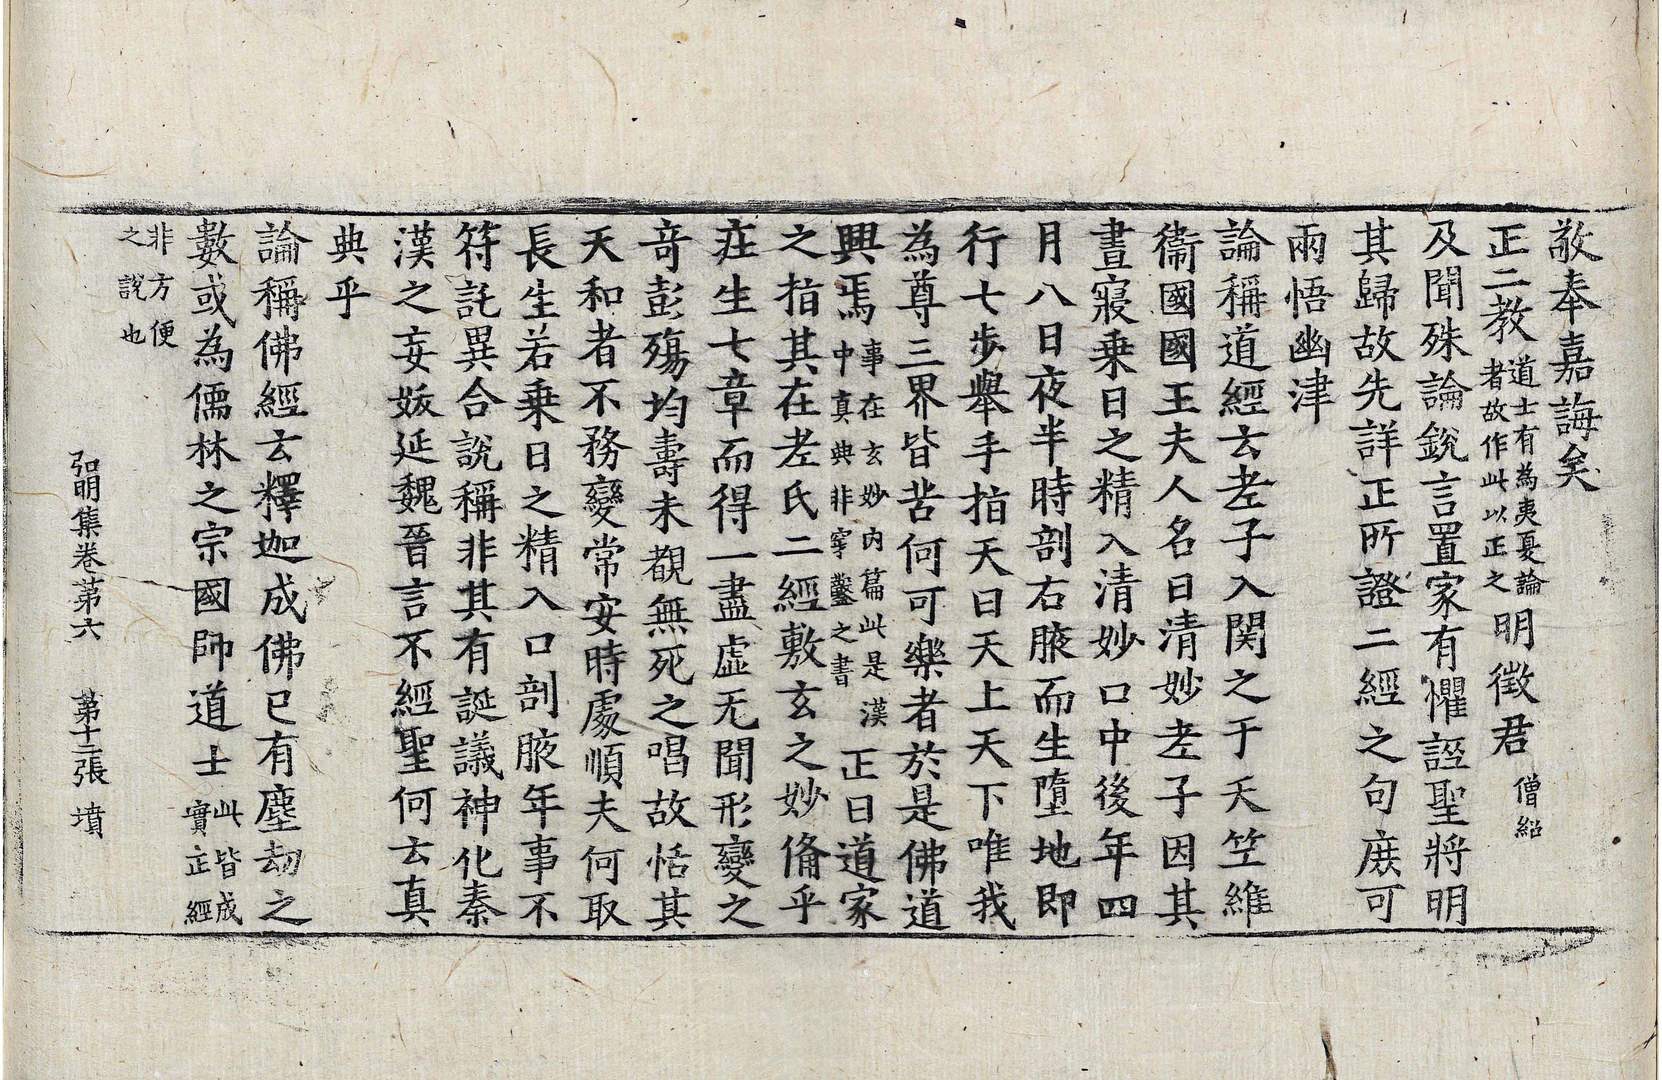 敬奉嘉誨矣
正二教道士有為夷夏論者故作此以正之明徵君僧紹
及聞殊論銳言置家有懼誣聖將明
其歸故先詳正所證二經之句庻可
兩悟幽津
論稱道經云老子入関之于天竺維
衞國國王夫人名曰清妙老子因其
晝寢乗日之精入清妙口中後年四
月八日夜半時剖右腋而生墮地即
行七步舉手指天曰天上天下唯我
為尊三界皆苦何可樂者於是佛道
興焉事在玄妙内篇此是漢中真典非穿鑿之書正曰道家
之指其在老氏二經敷玄之妙俻乎
莊生七章而得一盡虛无聞形變之
奇彭殤均壽未覩無死之唱故恬其
天和者不務變常安時處順夫何取
長生若乗日之精入口剖腋年事不
符託異合說稱非其有誕議神化秦
漢之妄妖延魏晉言不經聖何云真
典乎
論稱佛經云釋迦成佛已有塵劫之
數或為儒林之宗國師道士此皆成實正經
非方便之說也
弘明集卷第六　第十二張　墳